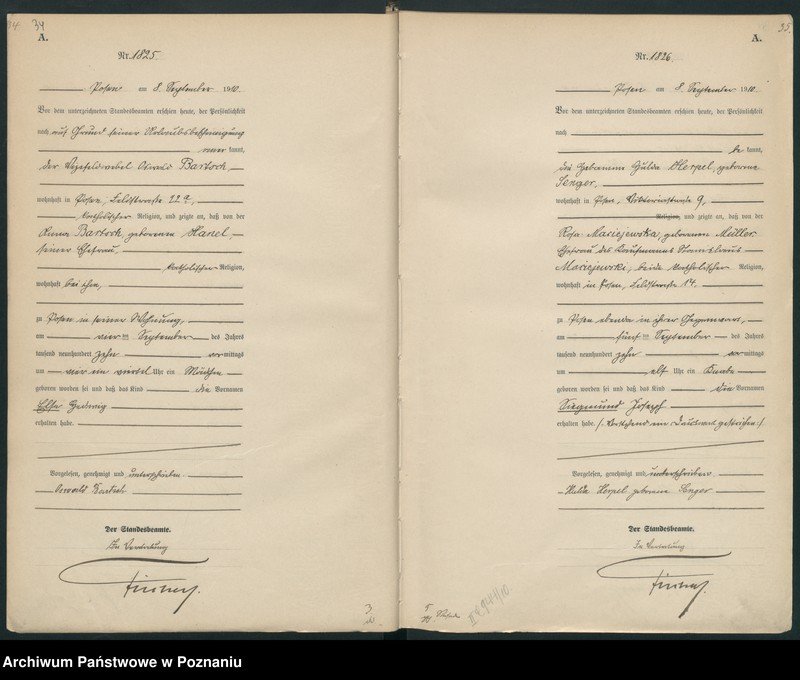 34
A.
Nr. 1825.
Posen am 8. September 1910.
Vor dem unterzeichneten Standesbeamten erschien heute, der Persönlichkeit
nach auf Grund seiner
kannt,
der Vizefeldwebel Oswald Bartsch
wohnhaft in Posen, Feldstrasse 22 a,
katholischer Religion, und zeigte an, daß von der
Anna Bartsch geborenen Hanel,
seiner Ehefrau,
katholischer Religion,
wohnhaft bei ihm,
zu Posen in seiner Wohnung,
am vierten September des Jahres
tausend neunhundert zehn vormittags
um vier ein viertel Uhr ein Mädchen
geboren worden sei und daß das Kind die Vornamen
Else Hedwig
erhalten habe.
Vorgelesen, genehmigt und unterschrieben
Oswald Bartsch
Der Standesbeamte.
In Vertretung
35.
A.
Nr. 1826.
Posen am 8. September 1910.
Vor dem unterzeichneten Standesbeamten erschien heute, der Persönlichkeit
nach
be kannt,
die Hebamme Hulda Herpel, geborene
Senger,
wohnhaft in Posen, Viktoriastrasse 9,
Religion, und zeigte an, daß von der
Rosa Maciejewska, geborenen Müller,
Ehefrau des Kaufmanns Stanislaus
Maciejewski, beide katholischer Religion,
wohnhaft in Posen, Feldstrasse 14.
zu Posen ebenda in ihrer Gegenwart,
am fünften September des Jahres
tausend neunhundert zehn vormittags
um elf Uhr ein Knabe
geboren worden sei und daß das Kind die Vornamen
Siegmund Joseph
erhalten habe. /: Vorstehend ein Druckwort gestrichen :/
Vorgelesen, genehmigt und unterschrieben
Hulda Herpel geborene Senger
Der Standesbeamte.
In Vertretung
Archiwum Państwowe w Poznaniu